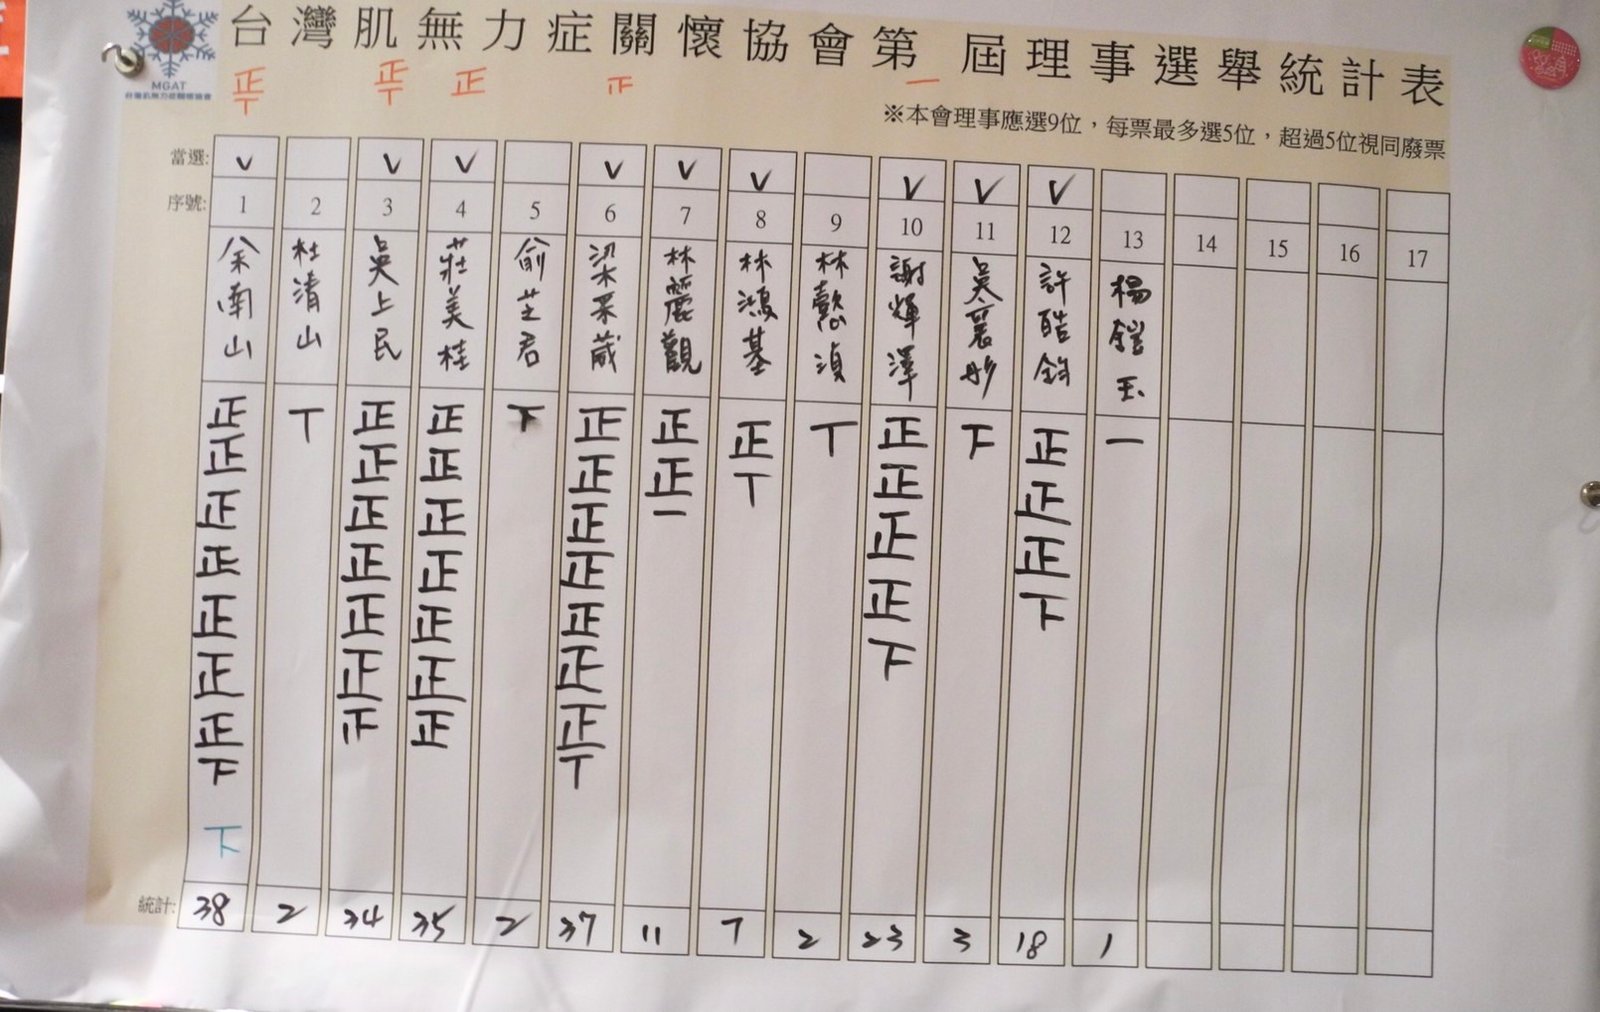 台灣肌無力症關懷協會第 屆理事選舉統計表
MGAT
台灣肌無力症關懷協會
正 正 正 正 一
丅 丅
※本會理事應選9位，每票最多選5位，超過5位視同廢票
當選: v v v v v v v v v
序號: 1 2 3 4 5 6 7 8 9 10 11 12 13 14 15 16 17
余南山
杜清山
吳上民
莊美桂
俞芝君
梁采葳
林麗觀
林鴻基
林懿湞
謝輝澤
吳襄彤
許皓鈞
楊鎧玉
正 丅 正 正 下 正 正 正 丅 正 下 正 一
正 正 正 正 正 丅 正 正
正 正 正 正 一 正 正
正 正 正 正 正 下
正 正 正 正 下
正 正 正 正
正 正 正 正
下 丅
下
統計: 38 2 34 35 2 37 11 7 2 23 3 18 1